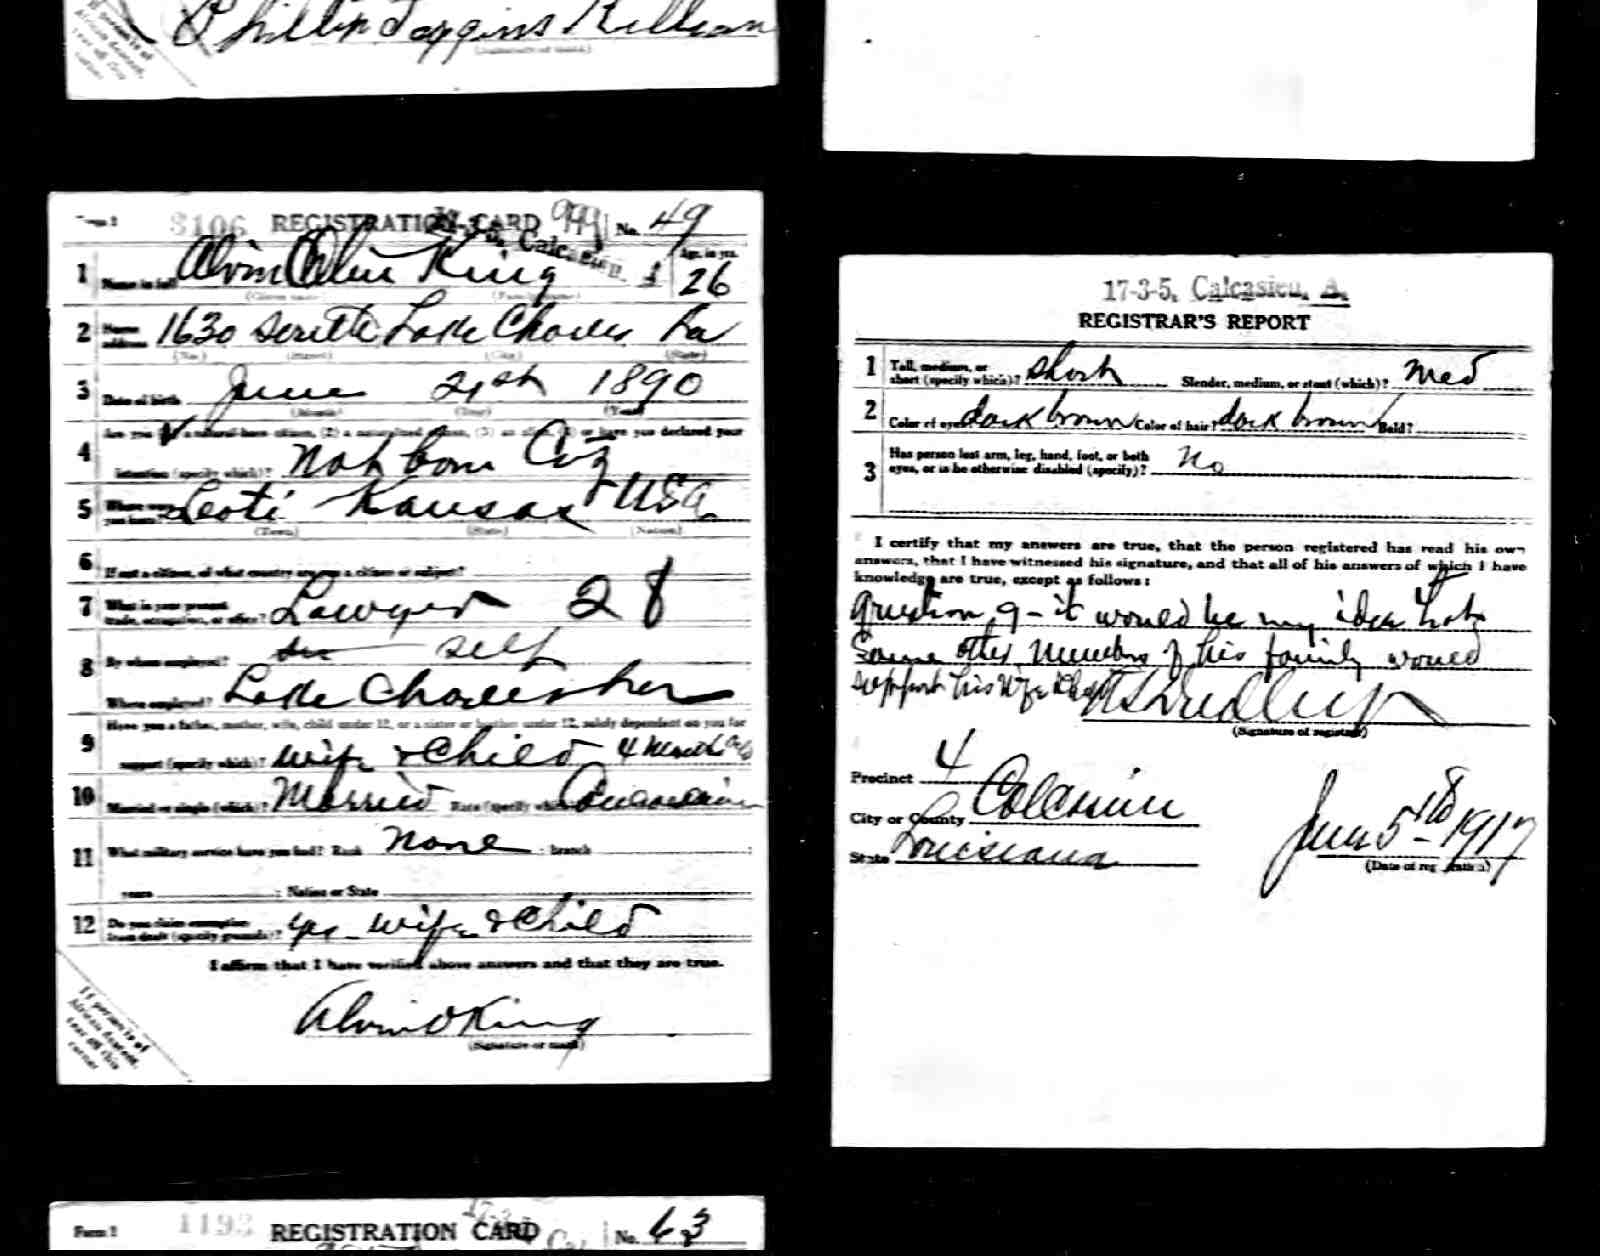 Phillip Joggins Killian
(Signature or mark)
If person is of
African descent,
tear off this
corner
3106 REGISTRATION CARD 999 No. 49
17-3-5, Calcasieu, A
1 Name in full Alvin Olin King Age, in yrs. 26
(Given name) (Family name)
2 Home address 1630 Lake Charles La
(No.) (Street) (City) (State)
3 Date of birth June 21st 1890
(Month) (Day) (Year)
4 Are you (1) a natural-born citizen, (2) a naturalized citizen, (3) an alien, (4) or have you declared your
intention (specify which)? Nat born Ciz
5 Where were you born? Leoti Kansas USA
(Town) (State) (Nation)
6 If not a citizen, of what country are you a citizen or subject?
7 What is your present trade, occupation, or office? Lawyer 28
8 By whom employed? self
Where employed? Lake Charles
9 Have you a father, mother, wife, child under 12, or a sister or brother under 12, solely dependent on you for
support (specify which)? Wife & Child 4 months old
10 Married or single (which)? Married Race (specify which)? Caucasian
11 What military service have you had? Rank None ; branch ;
years ; Nation or State
12 Do you claim exemption from draft (specify grounds)? yes - wife & Child
I affirm that I have verified above answers and that they are true.
Alvin O King
(Signature or mark)
If person is of
African descent,
tear off this
corner
Form 1 1193 REGISTRATION CARD No. 63
17-3-5, Calcasieu, A.
REGISTRAR'S REPORT
1 Tall, medium, or short (specify which)? short Slender, medium, or stout (which)? Med
2 Color of eyes? dark brown Color of hair? dark brown Bald?
3 Has person lost arm, leg, hand, foot, or both
eyes, or is he otherwise disabled (specify)? No
I certify that my answers are true, that the person registered has read his own
answers, that I have witnessed his signature, and that all of his answers of which I have
knowledge are true, except as follows:
Question 9 - it would be my idea that
Some other members of his family would
support his wife &
(Signature of registrar)
Precinct 4
City or County Calcasieu
State Louisiana
June 5th - 1917
(Date of registration)